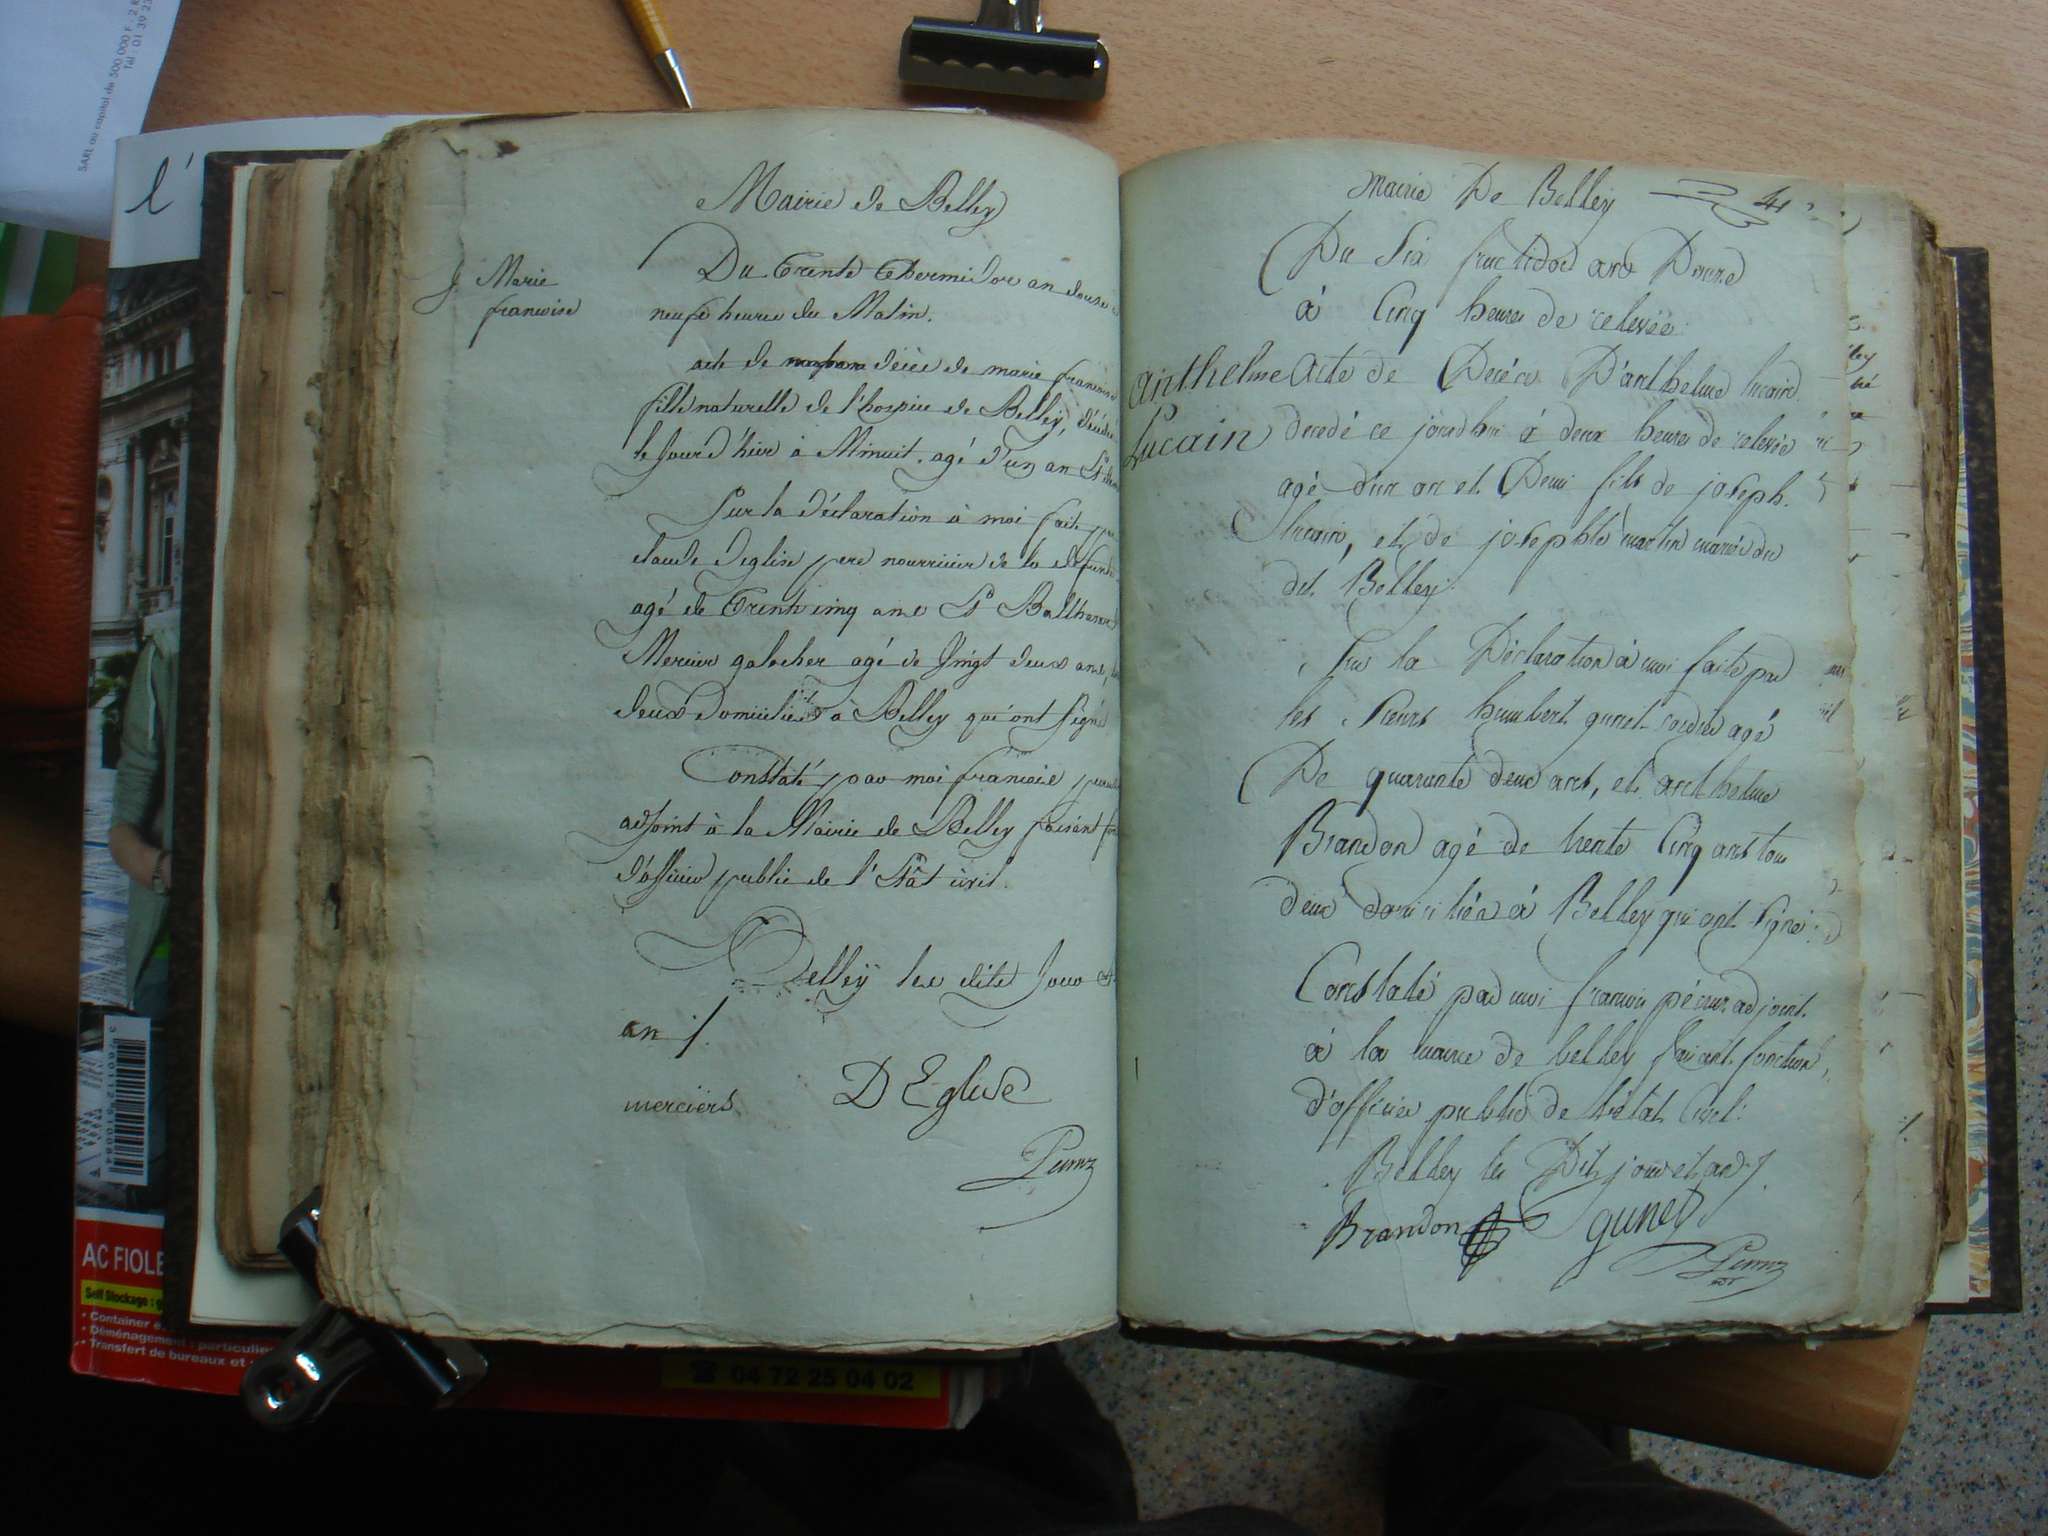 SARL au capital de 500 000 F - 2 R
Tél : 01 39 23
l'
Mairie de Belley
Marie
francoise
Du Trente Thermidor an douze
neufe heures du Matin.
acte de décès de marie francoise
fille naturelle de l'hospice de Belley, décédée
le Jour d'hier à Minuit, agé d'un an
Sur la déclaration à moi faite par
claude deglise pere nourricier de la défunte
agé de Trente cinq ans Et Balthazard
Mercier galocher agé de Vingt deux ans,
deux Domiciliés à Belley qui ont Signé
Constaté par moi francois
adjoint à la Mairie de Belley faisant
d'officier public de l'Etât civil.
Belley les dits Jour &
an /.
merciers D Eglise
mairie De Belley 41
Du Six fructidor an Douze
à Cinq heures de relevée
anthelme
Lucain
acte de Décès D'anthelme lucain
decedé ce jourdhui à deux heures de relevée
agé d'un an et Demi fils de joseph
lucain, et de josephte martin mariés du
dit Belley.
Sur la Déclaration à moi faite par
les Sieurs humbert gunet cordier agé
De quarante deux ans, et anthelme
Brandon agé de trente Cinq ans tous
deux domiciliés à Belley qui ont signé
Constaté par moi francois adjoint
à la mairie de belley faisant fonction
d'officier public de l'état Civil.
Belley les Dits jour et an /.
Brandon gunet
AC FIOLE
Self Stockage :
• Container
• Déménagement : particulier
• Transfert de bureaux et
04 72 25 04 02